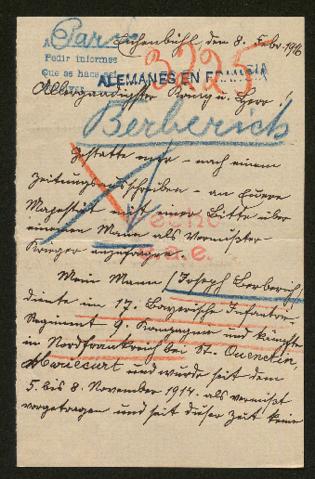 Paris
Eichenbühl den 8. Febr. 1916
Pedir informes
Que se haga
ALEMANES EN FRANCIA
3225
Allergnädigster König u. Herr!
Berberich
Gestatte mir – nach einem
Zeitungsausschreiben – an Euere
Majestät mit einer Bitte über
meinen Mann als Vermisster
Krieger anzufragen.
Mein Mann Joseph Berberich
diente im 17. Bayerische Infanterie
Regiment 9. Kompagnie und kämpfte
in Nordfrankreich bei St. Quentin,
und wurde seit dem
5. bis 8. November 1914 als vermißt
vorgetragen und seit dieser Zeit keine